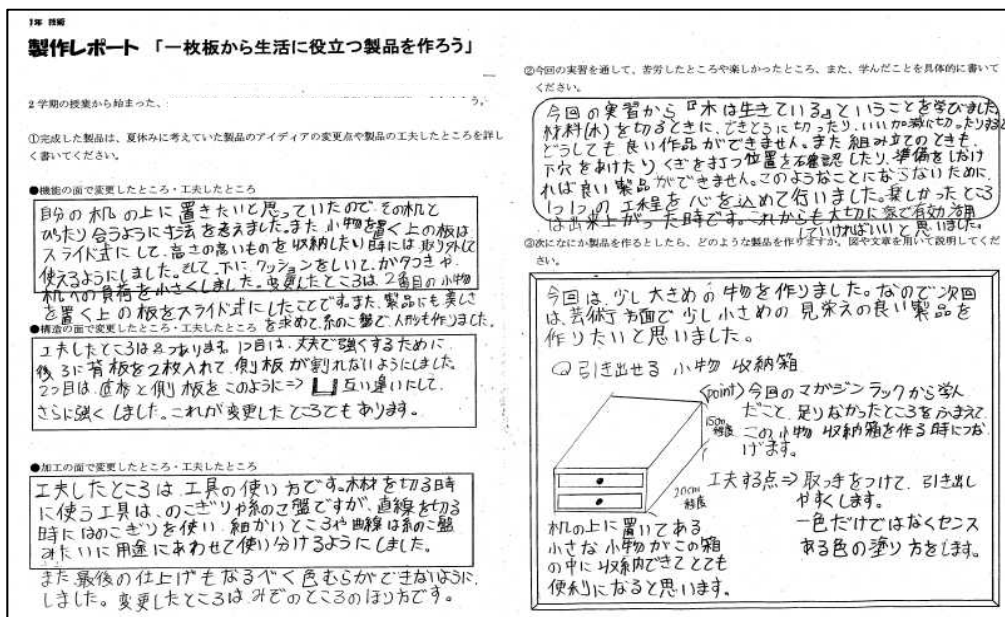 1年 技術
製作レポート 「一枚板から生活に役立つ製品を作ろう」
2学期の授業から始まった、
う。
①完成した製品は、夏休みに考えていた製品のアイディアの変更点や製品の工夫したところを詳し
く書いてください。
●機能の面で変更したところ・工夫したところ
自分の机の上に置きたいと思っていたので、その机と
ぴったり合うように寸法を考えました。また小物を置く上の板は
スライド式にして、高さの高いものを収納したい時には取り外して
使えるようにしました。そして、下にクッションをしいて、がたつきや、
机への負荷を小さくしました。変更したところは、2番目の小物
を置く上の板をスライド式にしたことです。また、製品にも美しさ
を求めて、糸のこ盤で、人形も作りました。
●構造の面で変更したところ・工夫したところ
工夫したところは2つあります。1つ目は、丈夫で強くするために
後ろに背板を2枚入れて、側板が割れないようにしました。
2つ目は、底板と側板をこのように⇒ 互い違いにして、
さらに強くしました。これが変更したところでもあります。
●加工の面で変更したところ・工夫したところ
工夫したところは、工具の使い方です。木材を切る時
に使う工具は、のこぎりや糸のこ盤ですが、直線を切る
時にはのこぎりを使い、細かいところや曲線は糸のこ盤
みたいに用途にあわせて使い分けるようにしました。
また、最後の仕上げもなるべく色むらができないように、
しました。変更したところは、みぞのところのほり方です。
②今回の実習を通して、苦労したところや楽しかったところ、また、学んだことを具体的に書いて
ください。
今回の実習から『木は生きている』ということを学びました。
材料(木)を切るときに、てきとうに切ったり、いい加減に切ったりすると
どうしても良い作品ができません。また組み立てのときも、
下穴をあけたりくぎを打つ位置を確認したり、準備をしなけ
れば良い製品ができません。このようなことにならないために、
1つ1つの工程を心を込めて行いました。楽しかったところ
は出来上がった時です。これからも大切に家で有効活用
していければいいと思いました。
③次になにか製品を作るとしたら、どのような製品を作りますか。図や文章を用いて説明してくだ
さい。
今回は、少し大きめの物を作りました。なので次回
は、芸術方面で少し小さめの見栄えの良い製品を
作りたいと思いました。
引き出せる 小物 収納箱
(point) 今回のマガジンラックから学ん
だこと、足りなかったところをふまえて、
この小物収納箱を作る時につな
げます。
15cm
程度
20cm
程度
工夫する点⇒取っ手をつけて、引き出し
やすくします。
一色だけではなくセンス
ある色の塗り方をします。
机の上に置いてある
小さな小物がこの箱
の中に収納できてとても
便利になると思います。